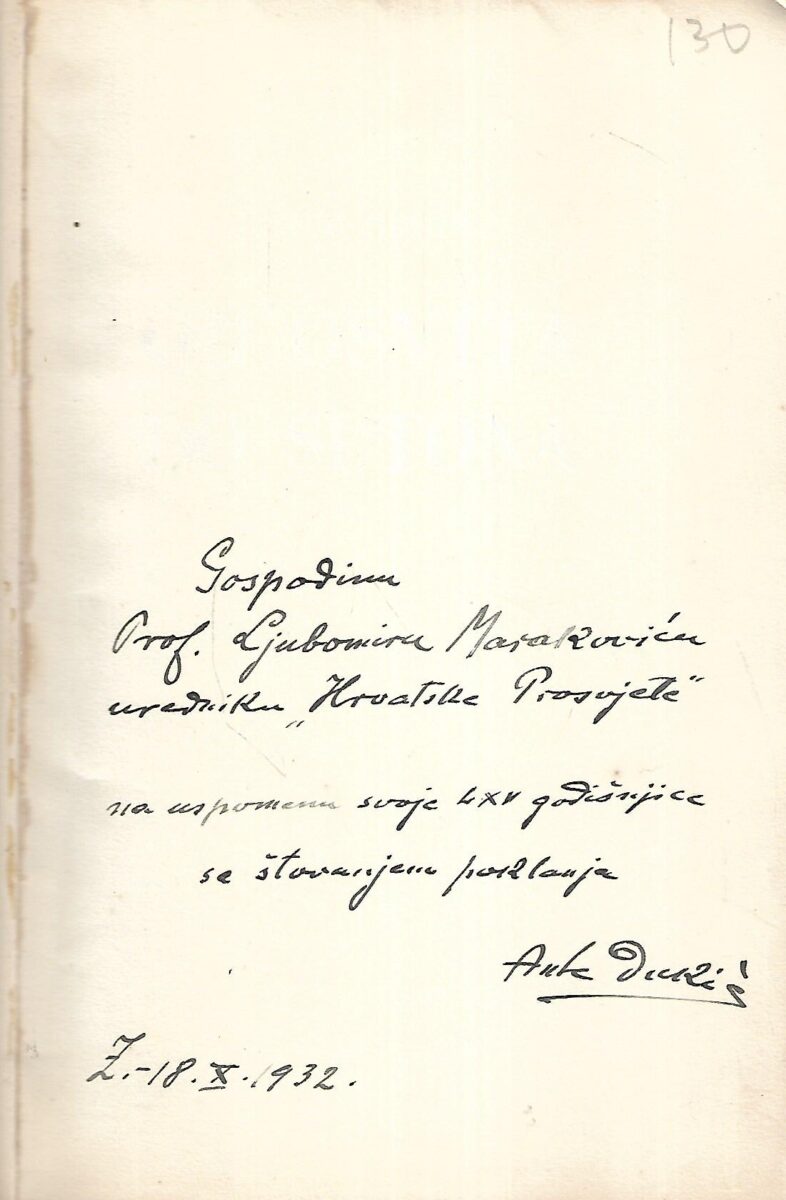 130
Gospodinu
Prof. Ljubomiru Marakoviću
uredniku „Hrvatske Prosvjete"
na uspomenu svoje LXV godišnjice
sa štovanjem poklanja
Ante Dukić
Z.-18.X.1932.